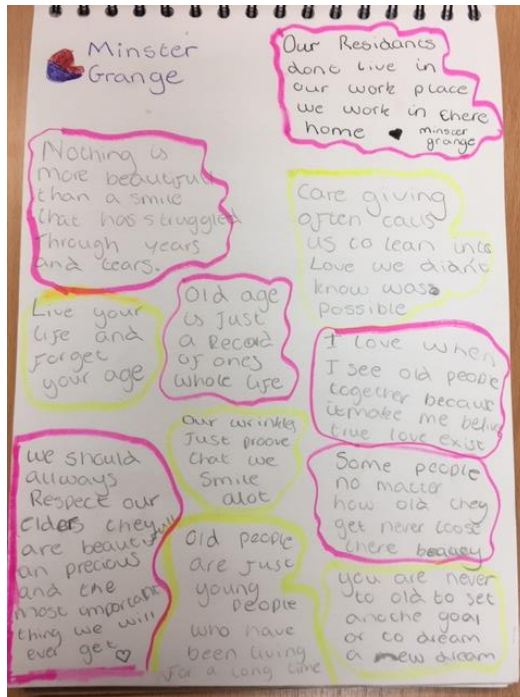 Minster
Grange
Our Residants
dont live in
our work place
we work in there
home minster
grange
Nothing is
more beautifull
than a smile
that has struggled
Through years
and tears.
Care giving
often calls
us to lean into
Love we didn't
know was
possible
Live your
life and
forget
your age
Old age
is Just
a Record
of ones
whole life
I love when
I see old people
together becaus
it make me believ
true love exist
Our wrinkles
Just proove
that we
Smile
alot
we should
allways
Respect our
Elders they
are beautifull
an precious
and the
most important
thing we will
ever get
Old people
are just
young
people
who have
been living
for a long time
Some people
no matter
how old they
get never loose
there beautey
you are never
to old to set
anothe goal
or to dream
a new dream